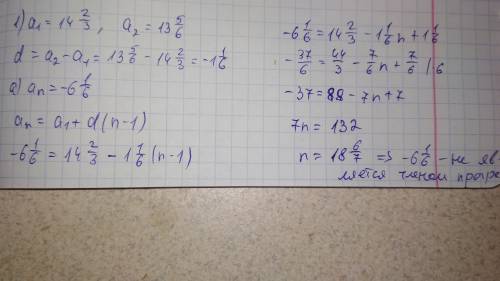 1) a₁ = 14 2/3, a₂ = 13 5/6
d = a₂ - a₁ = 13 5/6 - 14 2/3 = -1 1/6
a) aₙ = -6 1/6
aₙ = a₁ + d(n-1)
-6 1/6 = 14 2/3 - 1 1/6 (n-1)
-6 1/6 = 14 2/3 - 1 1/6 n + 1 1/6
-37/6 = 44/3 - 7/6 n + 7/6 | 6
-37 = 88 - 7n + 7
7n = 132
n = 18 6/7 => -6 1/6 - не яв
ляется членом прогре